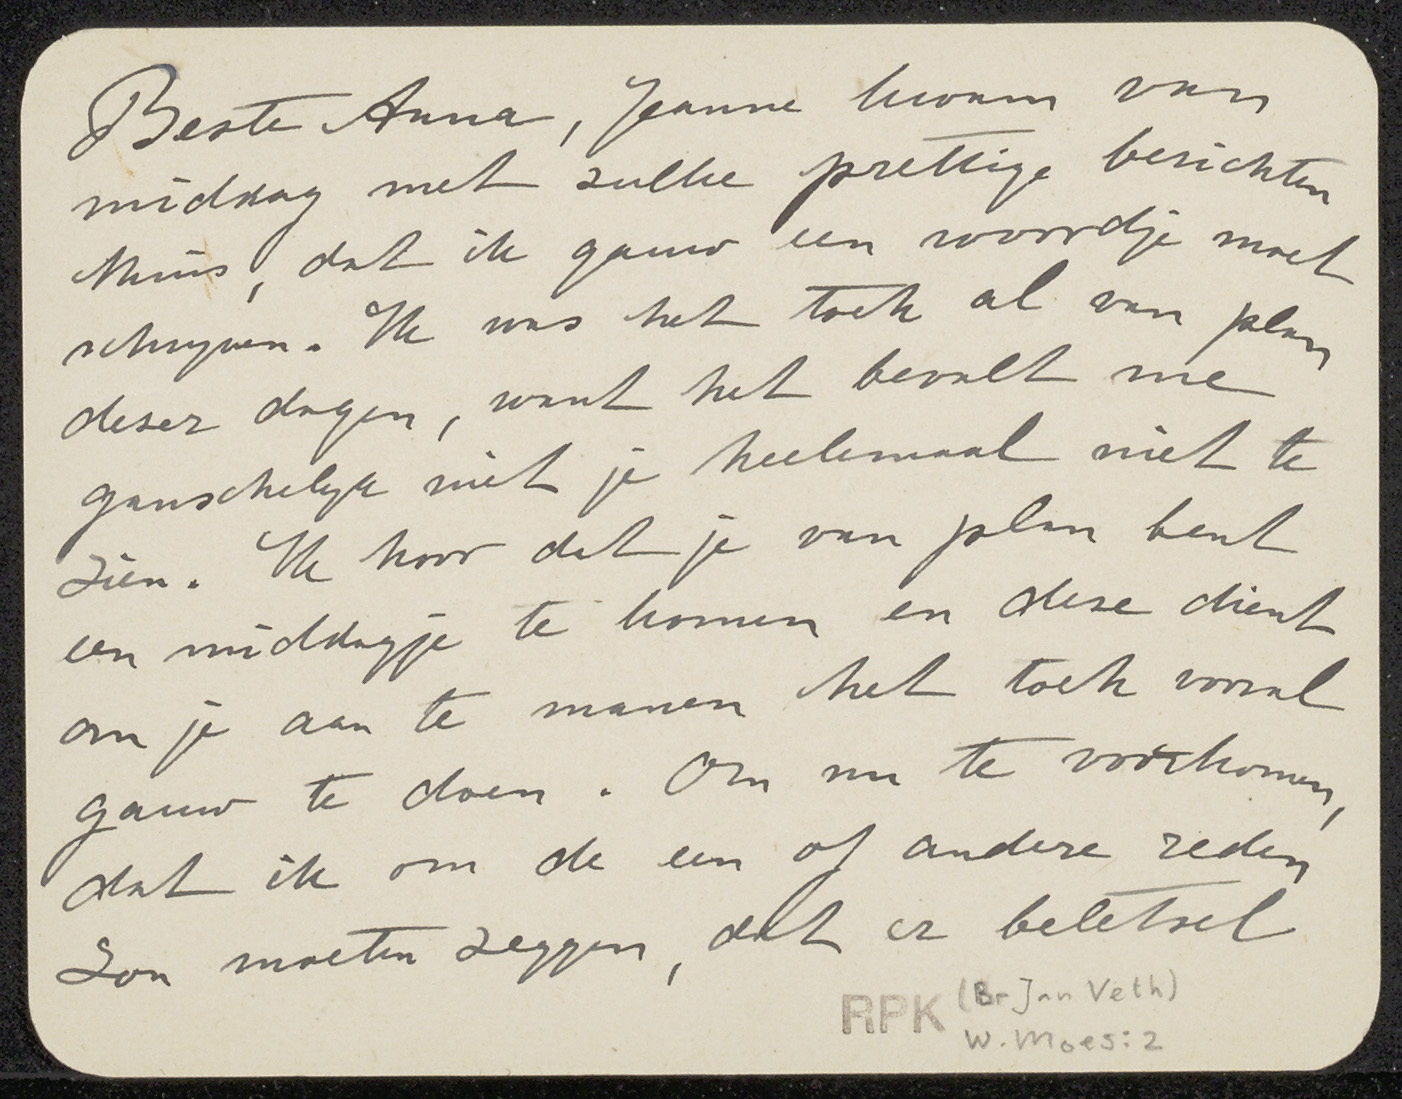 Beste Anna, Jeanne kwam van
middag met zulke prettige berichten
thuis, dat ik gauw een woordje moet
schrijven. Ik was het toch al van plan
dezer dagen, want het bevalt me
ganschelijk niet je heelemaal niet te
zien. Ik hoor dat je van plan bent
een middagje te komen en deze dient
om je aan te manen het toch vooral
gauw te doen. Om nu te voorkomen,
dat ik om de een of andere reden
zou moeten zeggen, dat er beletsel
RPK (Br Jan Veth)
W. Moes: 2